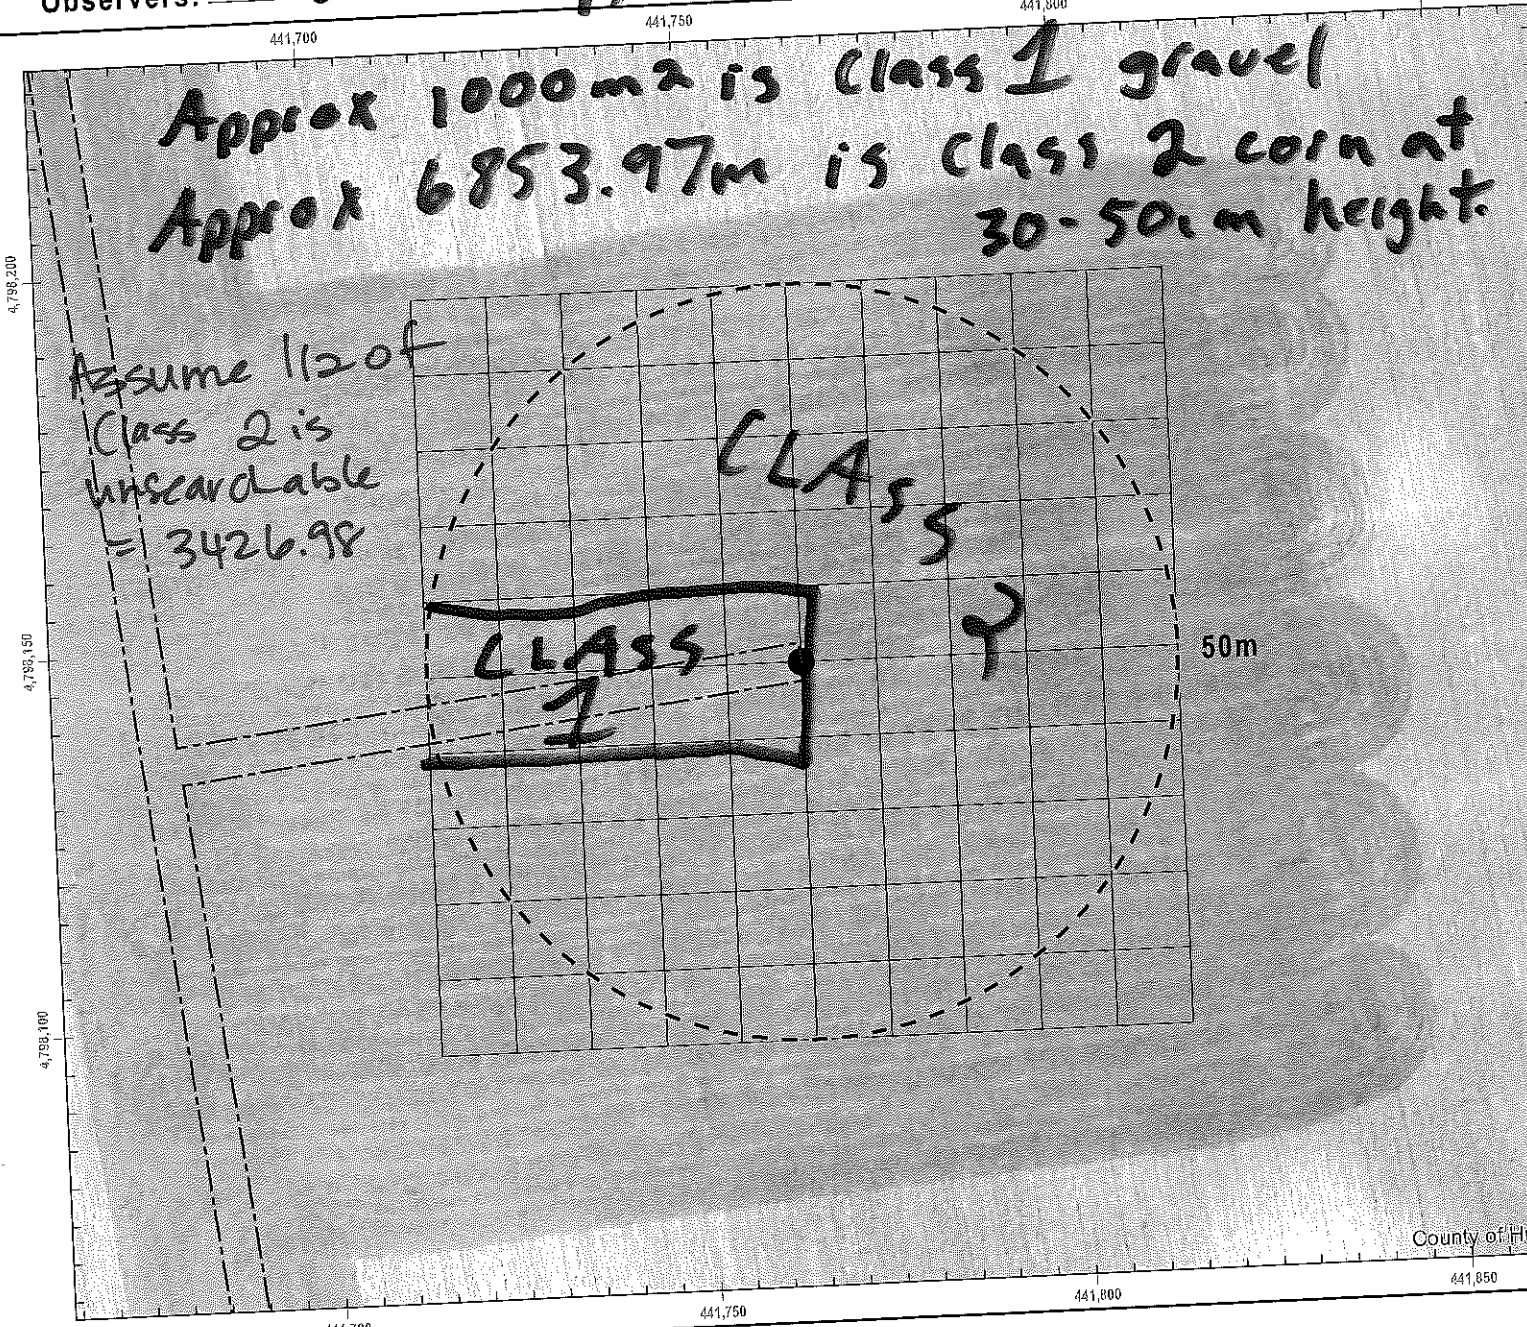 Observers:
441,750
441,800
441,700
Approx 1000m2 is Class 1 gravel
Approx 6853.97m is Class 2 corn at
30-50cm height.
4,798,200
Assume 1/2 of
Class 2 is
unsearchable
= 3426.98
CLASS
2
CLASS
1
50m
4,798,150
4,798,100
County of H
441,850
441,800
441,750